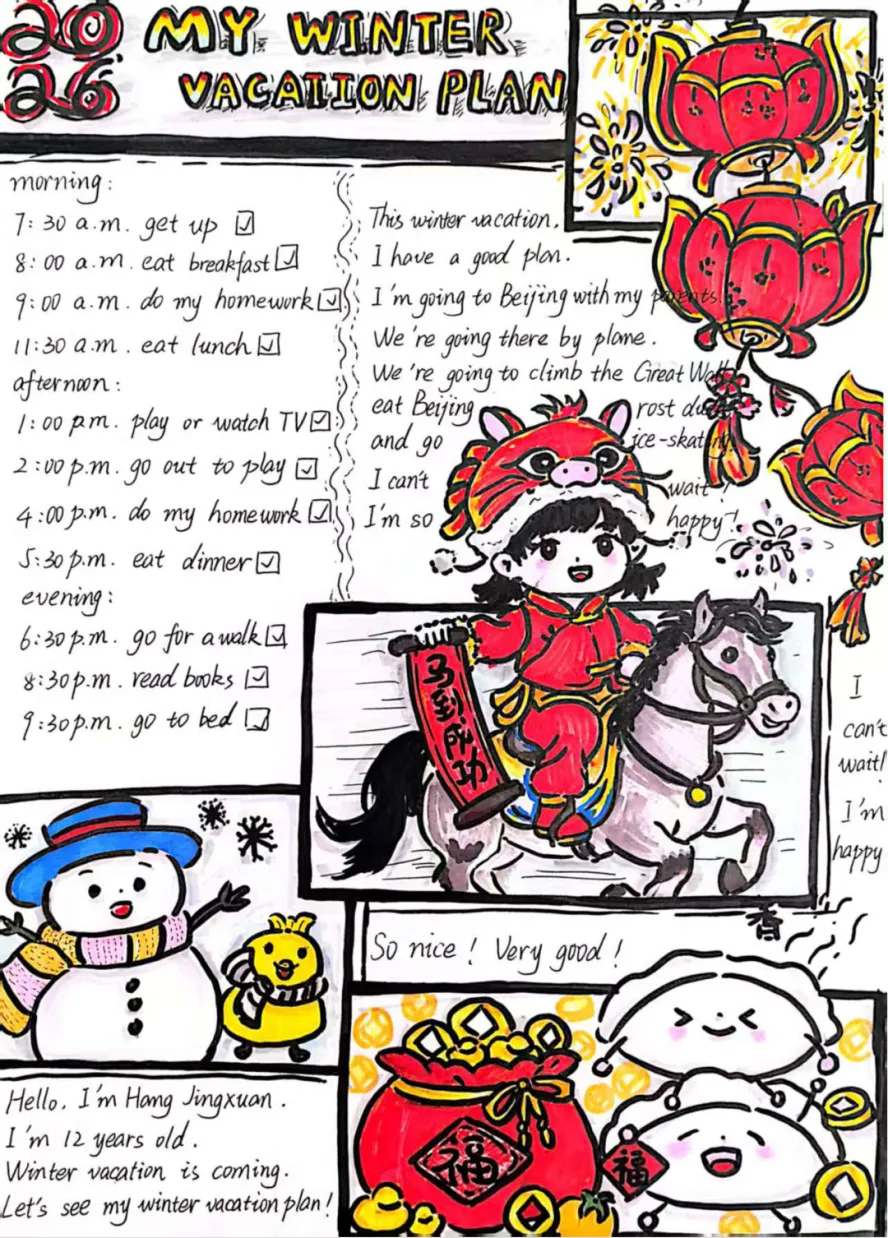 2026
MY WINTER
VACATION PLAN
morning:
7:30 a.m. get up
8:00 a.m. eat breakfast
9:00 a.m. do my homework
11:30 a.m. eat lunch
afternoon:
1:00 p.m. play or watch TV
2:00 p.m. go out to play
4:00 p.m. do my homework
5:30 p.m. eat dinner
evening:
6:30 p.m. go for a walk
8:30 p.m. read books
9:30 p.m. go to bed
This winter vacation,
I have a good plan.
I'm going to Beijing with my parents.
We're going there by plane.
We're going to climb the Great Wall
eat Beijing rost duck
and go ice-skating
I can't wait!
I'm so happy!
马到成功
I
can't
wait!
I'm
happy
So nice! Very good!
香
福
福
Hello. I'm Hang Jingxuan.
I'm 12 years old.
Winter vacation is coming.
Let's see my winter vacation plan!